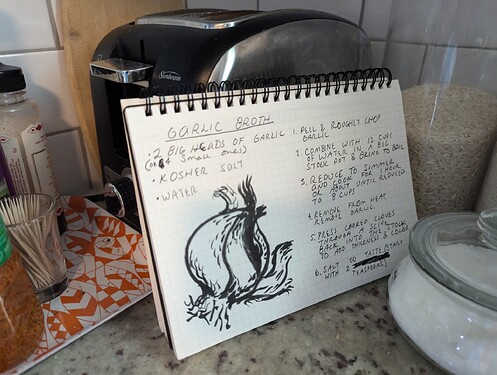 Sunbeam
GARLIC BROTH
• 2 BIG HEADS OF GARLIC
(or 4 small ones)
• KOSHER SALT
• WATER
1. PEEL & ROUGHLY CHOP
GARLIC
2. COMBINE WITH 12 CUPS
OF WATER IN A BIG
STOCK POT & BRING TO BOIL
3. REDUCE TO SIMMER
AND COOK FOR 1 HOUR
OR ABOUT UNTIL REDUCED
TO 8 CUPS
4. REMOVE FROM HEAT,
REMOVE GARLIC
5. PRESS COOKED CLOVES
THROUGH A SEIVE
BACK INTO THE STOCK
TO ADD THICKNESS & COLOR
6. SALT TO TASTE (START
WITH 2 TEASPOONS)